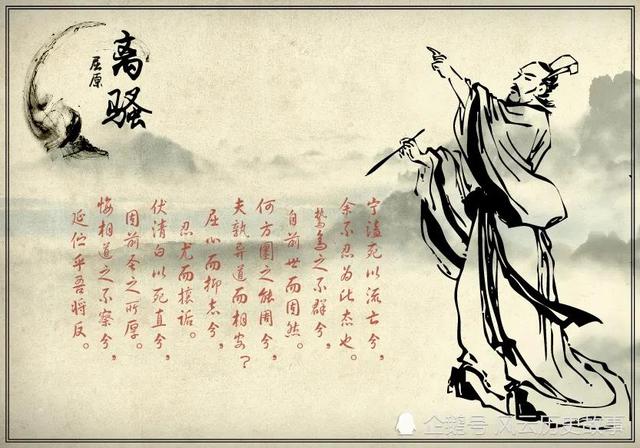 离骚
屈原
宁溘死以流亡兮，
余不忍为此态也。
鸷鸟之不群兮，
自前世而固然。
何方圜之能周兮，
夫孰异道而相安？
屈心而抑志兮，
忍尤而攘诟。
伏清白以死直兮，
固前圣之所厚。
悔相道之不察兮，
延伫乎吾将反。
企鹅号 风云历史故事